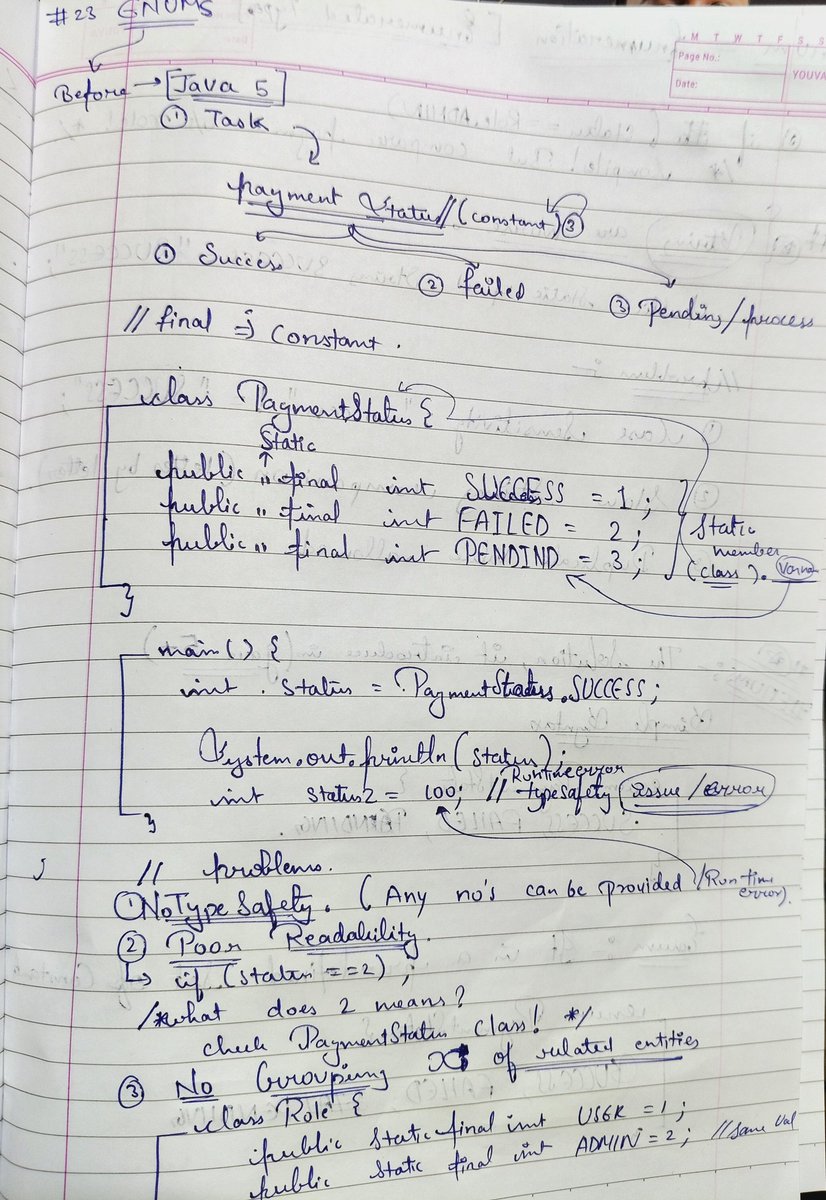 #23 ENUMS
M T W T F S S
Page No.:
Date:
YOUVA
Before → [Java 5]
① Task
payment Status // (constant) ③
① Success
② failed
③ Pending/process
// final ⇒ constant.
class PaymentStatus {
static
public " final int SUCCESS = 1;
public " final int FAILED = 2;
public " final int PENDIND = 3;
(static
member
(class).
}
main() {
int status = PaymentStatus.SUCCESS;
System.out.println(status);
Runtime error
int status2 = 100; // typesafety issue/error
}
// problems.
① No Type Safety. (Any no's can be provided /Run time
error).
② Poor Readability.
↳ if (status ==2) ;
/*what does 2 means?
check PaymentStatus class! */
③ No Grouping of related entities
class Role {
public static final int USER = 1;
public static final int ADMIN = 2; //same val